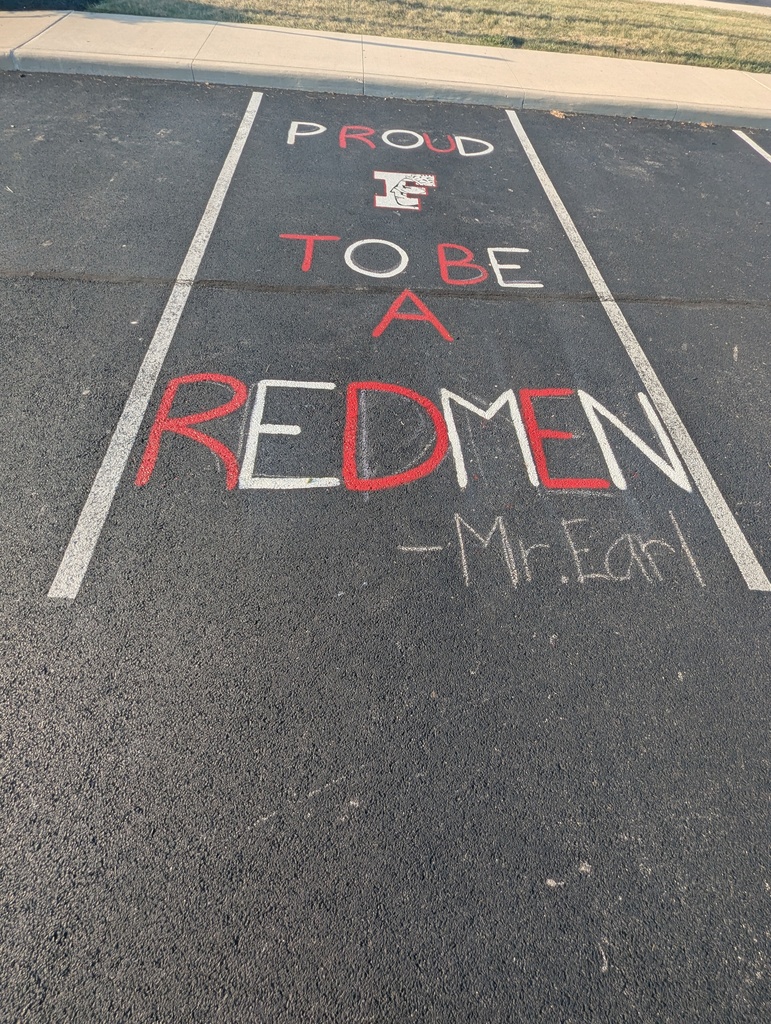 PROUD
F
TO BE
A
REDMEN
-Mr. Earl